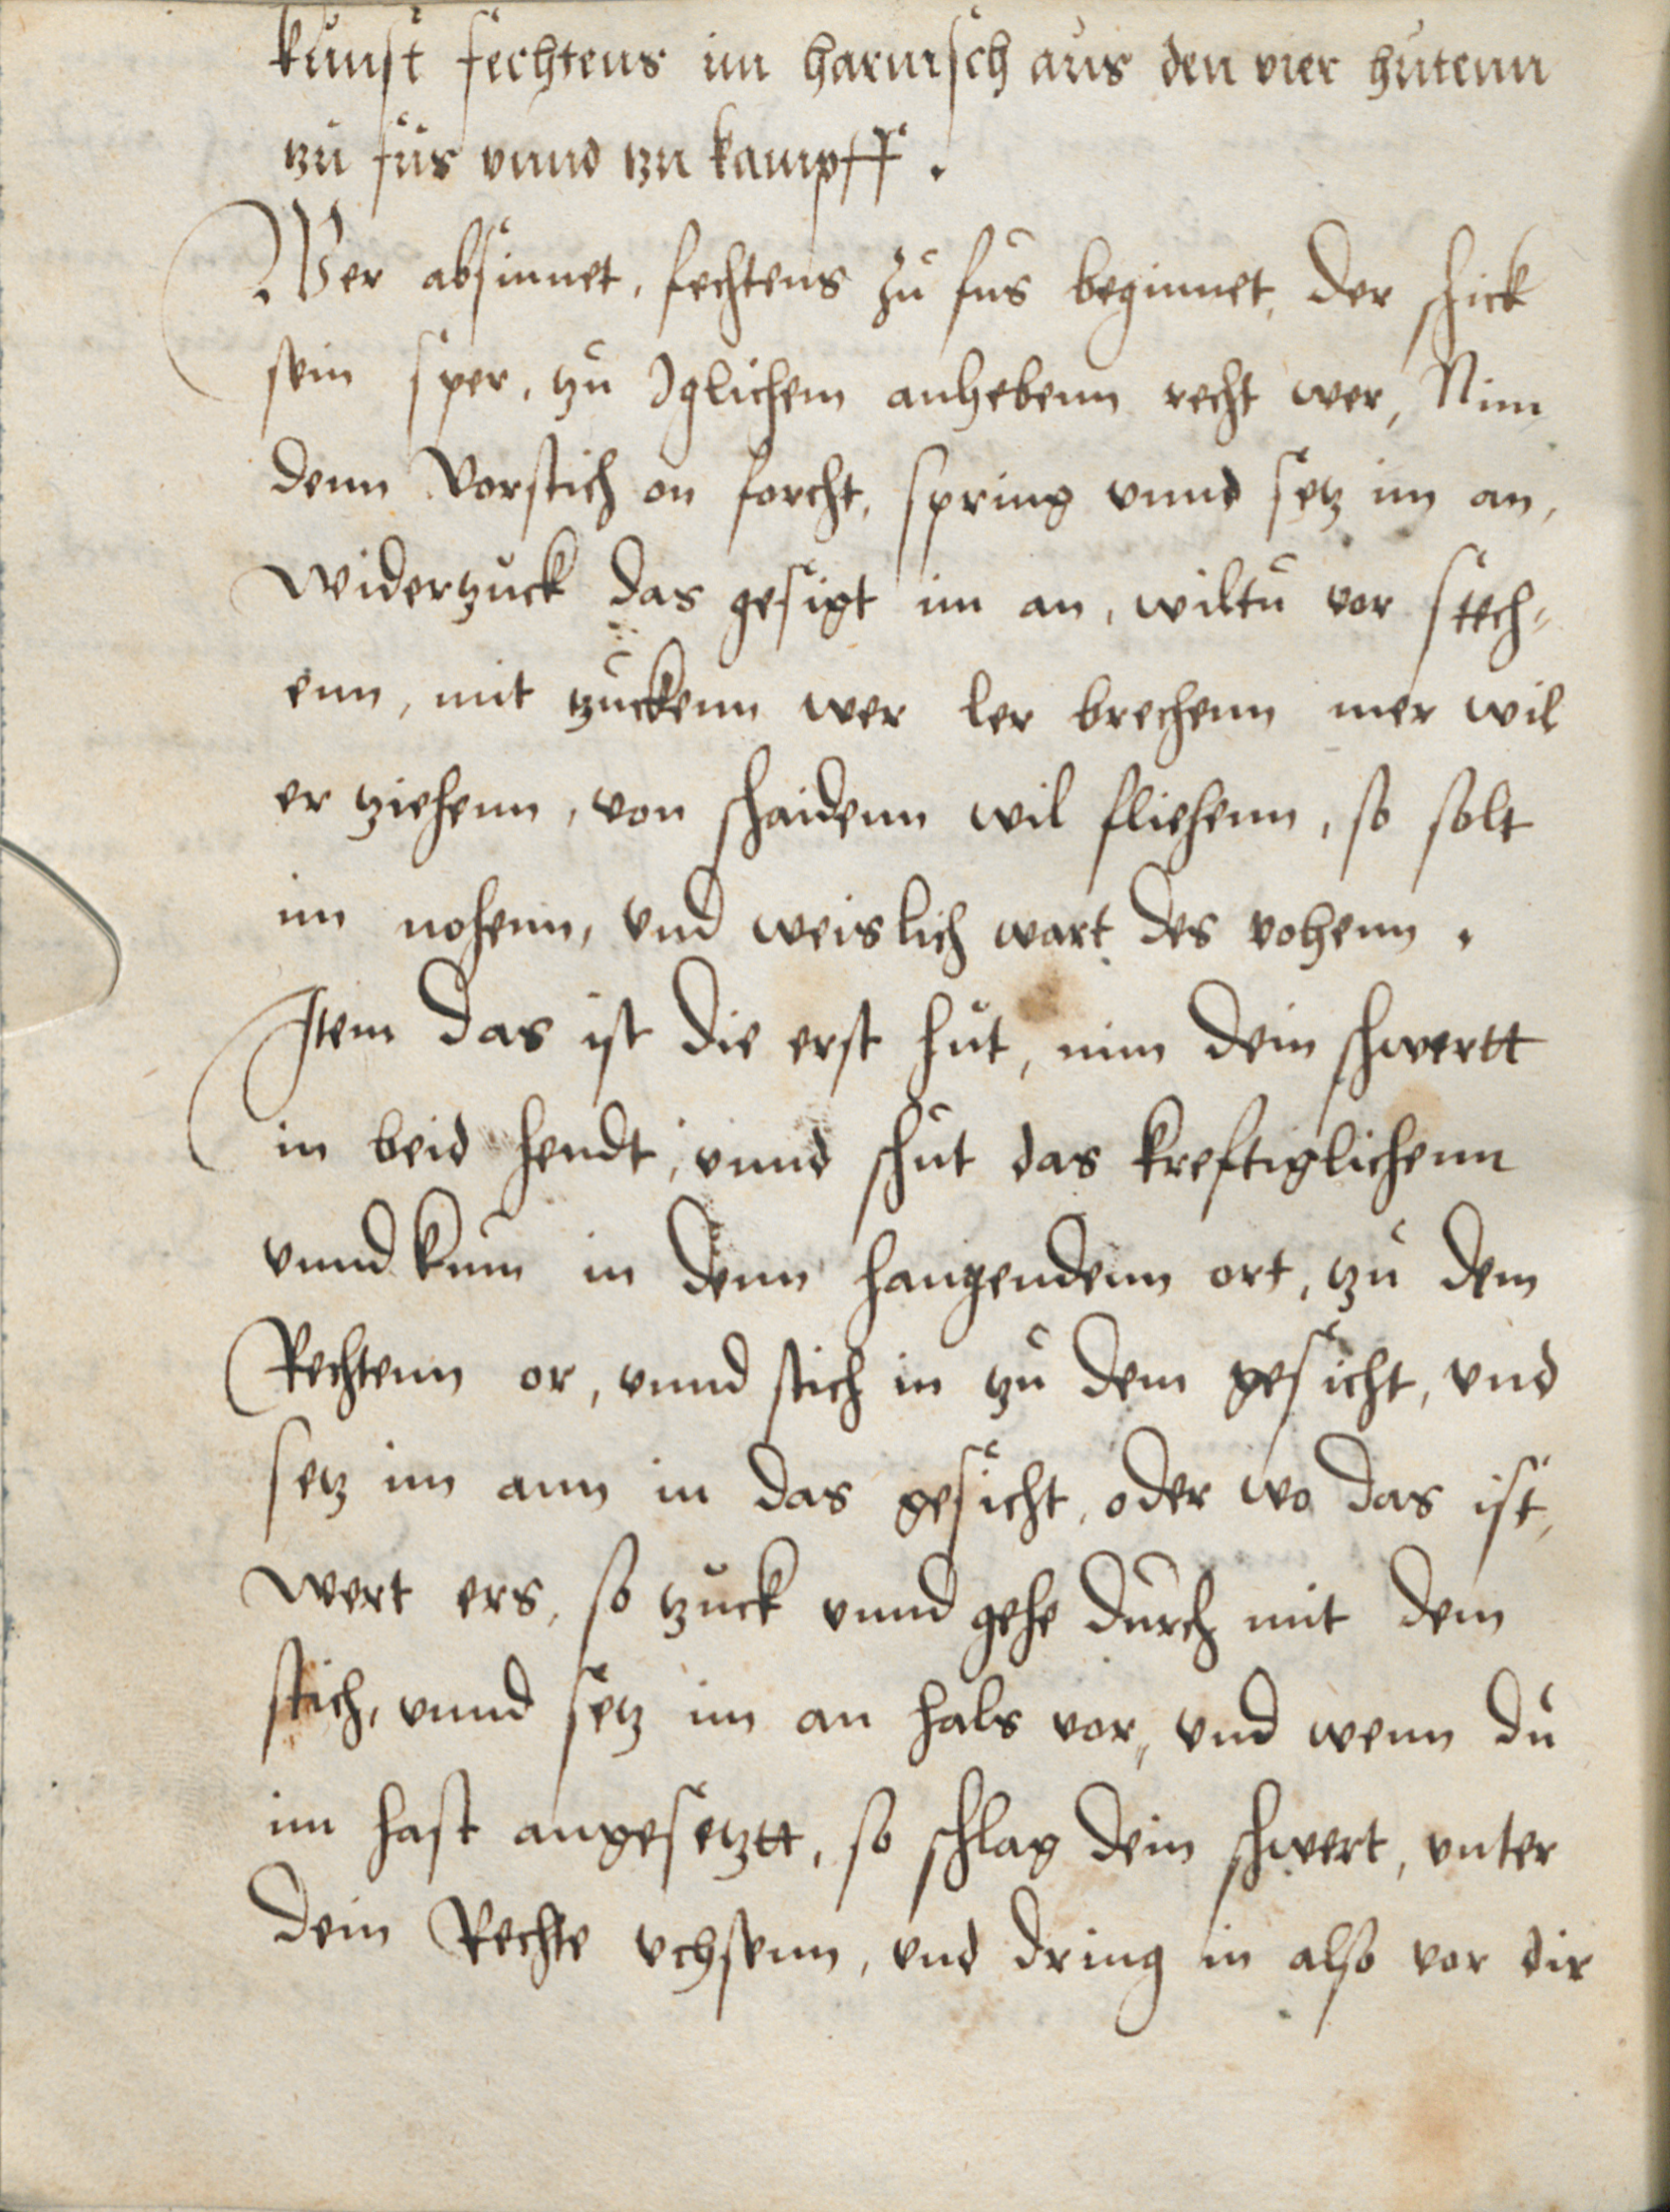 kunst fechtens im harnisch aus den vier hutenn
tzu fus vnnd tzu kampff.
Wer absinnet, fechtens zu fus beginnet, der schick
sein sper, tzu Iglichem anhebenn recht wer, Nim
denn Vorstich on forcht, spring vnnd setz im an,
widertzuck das gesigt im an, wiltu vor stech⸗
enn, mit tzuckenn wer ler brechenn mer wil
er tziehenn, von schaidenn wil fliehenn, so solt
im nohenn, vnd weislich wart des vohenn.
Item das ist die erst hut, nim dein schwertt
in beid hendt, vnnd schut das kreftiglichenn
vnnd kum in denn hangendenn ort, tzu dem
Rechtenn or, vnnd stich in tzu dem gesicht, vnd
setz im ann in das gesicht, oder wo das ist,
wert ers, so tzuck vnnd gehe durch mit dem
stich, vnnd setz im an hals vor, vnd wenn du
im hast angesetztt, so schlag dein schwert, vnter
dein Rechte vchsenn, vnd dring in also vor dir